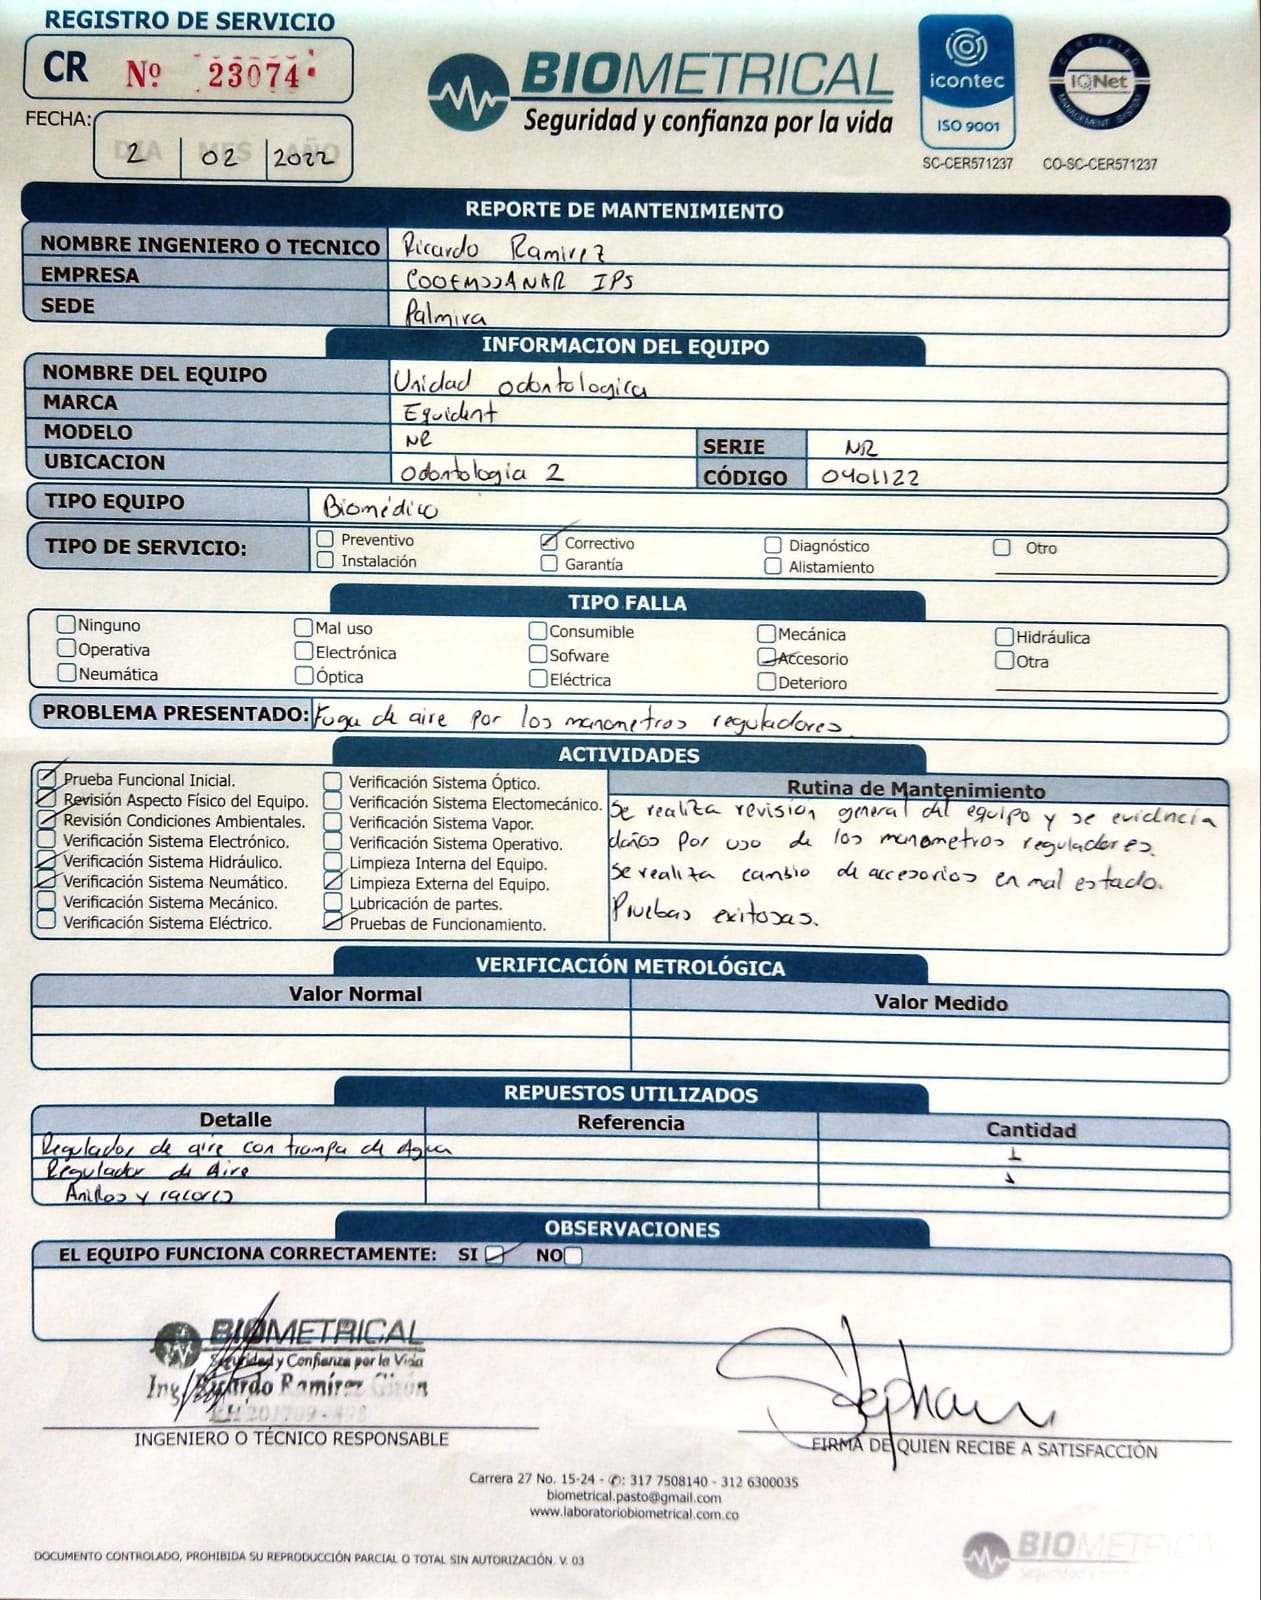 REGISTRO DE SERVICIO
CR Nº 23074
BIOMETRICAL
Seguridad y confianza por la vida
icontec
ISO 9001
SC-CER571237
CERTIFIED
IQNet
MANAGEMENT SYSTEM
CO-SC-CER571237
FECHA:
DIA MES AÑO
2 02 2022
REPORTE DE MANTENIMIENTO
NOMBRE INGENIERO O TECNICO Ricardo Ramirez
EMPRESA COOEMSSANAR IPS
SEDE Palmira
INFORMACION DEL EQUIPO
NOMBRE DEL EQUIPO Unidad odontologica
MARCA Equident
MODELO NR SERIE NR
UBICACION Odontologia 2 CÓDIGO 0401122
TIPO EQUIPO Biomédico
TIPO DE SERVICIO:
Preventivo Correctivo Diagnóstico Otro
Instalación Garantía Alistamiento
TIPO FALLA
Ninguno Mal uso Consumible Mecánica Hidráulica
Operativa Electrónica Sofware Accesorio Otra
Neumática Óptica Eléctrica Deterioro
PROBLEMA PRESENTADO: Fuga de aire por los manometros reguladores.
ACTIVIDADES
Prueba Funcional Inicial.
Revisión Aspecto Físico del Equipo.
Revisión Condiciones Ambientales.
Verificación Sistema Electrónico.
Verificación Sistema Hidráulico.
Verificación Sistema Neumático.
Verificación Sistema Mecánico.
Verificación Sistema Eléctrico.
Verificación Sistema Óptico.
Verificación Sistema Electomecánico.
Verificación Sistema Vapor.
Verificación Sistema Operativo.
Limpieza Interna del Equipo.
Limpieza Externa del Equipo.
Lubricación de partes.
Pruebas de Funcionamiento.
Rutina de Mantenimiento
Se realiza revisión general del equipo y se evidencia
daños por uso de los manometros reguladores.
Se realiza cambio de accesorios en mal estado.
Pruebas exitosas.
VERIFICACIÓN METROLÓGICA
Valor Normal Valor Medido
REPUESTOS UTILIZADOS
Detalle Referencia Cantidad
Regulador de aire con trampa de Agua 1
Regulador de Aire 1
Anillos y racores
OBSERVACIONES
EL EQUIPO FUNCIONA CORRECTAMENTE: SI NO
BIOMETRICAL
Seguridad y Confianza por la Vida
Ing. Ricardo Ramírez Girón
INGENIERO O TÉCNICO RESPONSABLE
FIRMA DE QUIEN RECIBE A SATISFACCIÓN
Carrera 27 No. 15-24 - ✆: 317 7508140 - 312 6300035
biometrical.pasto@gmail.com
www.laboratoriobiometrical.com.co
DOCUMENTO CONTROLADO, PROHIBIDA SU REPRODUCCIÓN PARCIAL O TOTAL SIN AUTORIZACIÓN. V. 03
BIOMETRICA